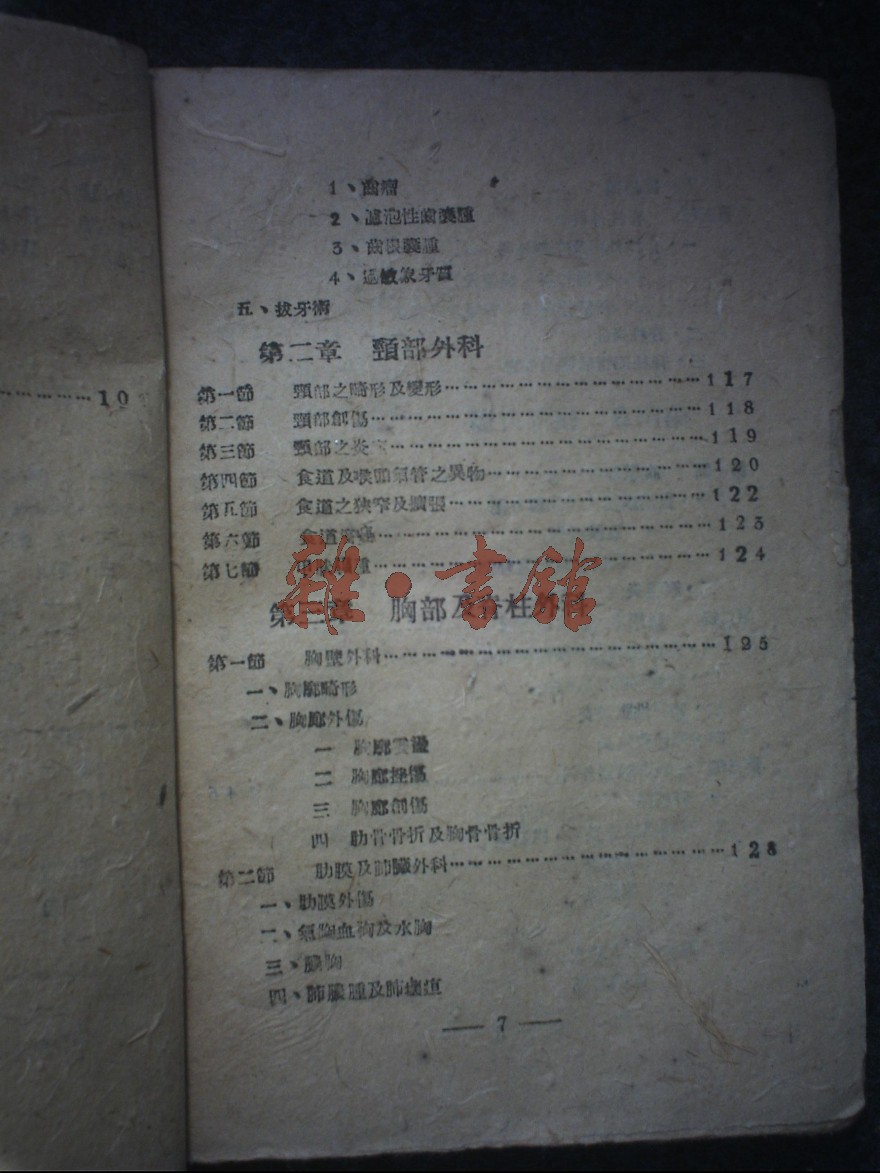 10
1、齒瘤
2、濾泡性齒囊腫
3、齒根囊腫
4、過敏象牙質
五、拔牙術
第二章 頸部外科
第一節 頸部之畸形及變形………………………117
第二節 頸部創傷………………………118
第三節 頸部之炎………………………119
第四節 食道及喉頭氣管之異物………………………120
第五節 食道之狹窄及擴張………………………122
第六節 食道癌………………………123
第七節 甲狀腺腫………………………124
雜·書館
第三章 胸部及脊柱外科
第一節 胸壁外科………………………125
一、胸廓畸形
二、胸廓外傷
一 胸廓震盪
二 胸廓挫傷
三 胸廓創傷
四 肋骨骨折及胸骨骨折
第二節 肋膜及肺臟外科………………………128
一、肋膜外傷
二、氣胸血胸及水胸
三、膿胸
四、肺膿腫及肺壞疽
— 7 —